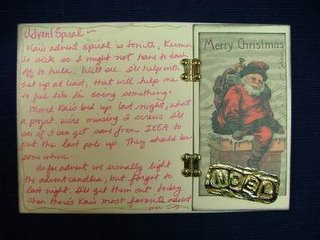 Advent Spiral
Kai's advent spiral is tonite, Kumin
is sick so I might not have to dash
off to hold. We'll see. I'll help with
set up at least, that will help me
to feel like I'm doing something!
Moved Kai's bed up last night, what
a project. We're missing 2 screws. I'll
see if I can get some from IKEA to
put the last pole up. They should be
some where.
As for advent we usually light
the advent candles, but forgot to
last night. I'll get them out today.
Then there's Kai's most favorite advent
Merry Christmas
NOEL